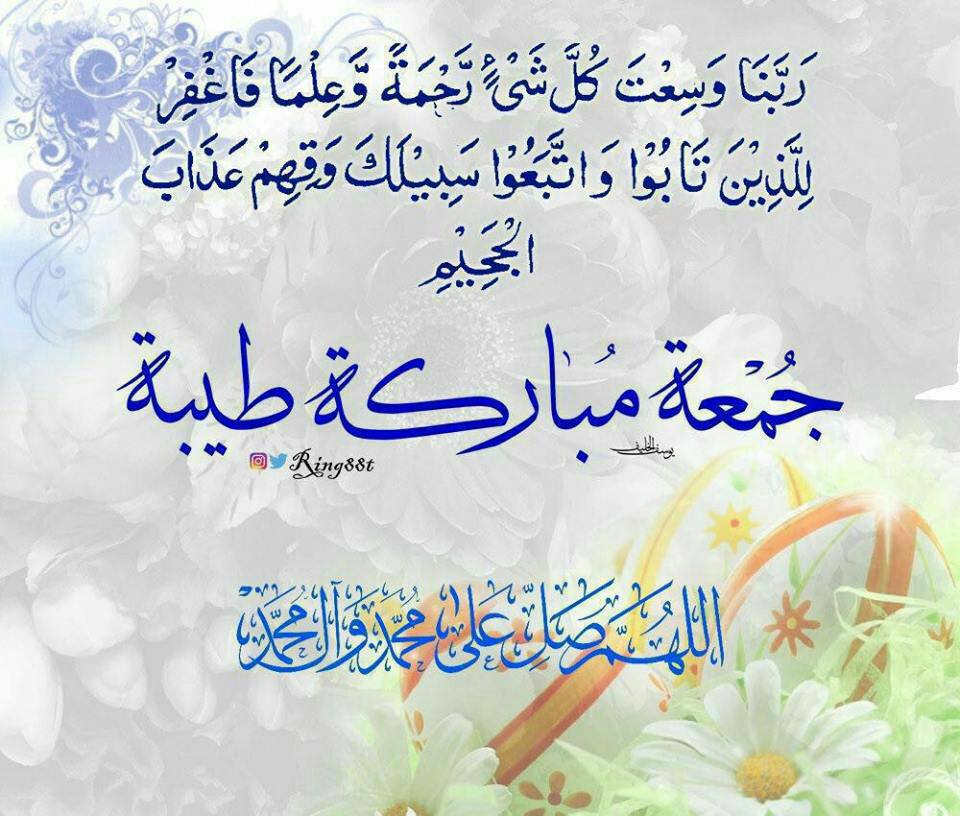 رَبَّنَا وَسِعْتَ كُلَّ شَیْءٍ رَّحْمَةً وَّعِلْمًا فَاغْفِرْ
لِلَّذِيْنَ تَابُوْا وَاتَّبَعُوْا سَبِيْلَكَ وَقِهِمْ عَذَابَ
الْجَحِيْمِ
جُمْعَة مُبَاركة طيبة
يوسف الخليف
Ring88t
اللهُمَّ صَلِّ عَلىٰ مُحمَّد وَآلِ مُحمَّدْ